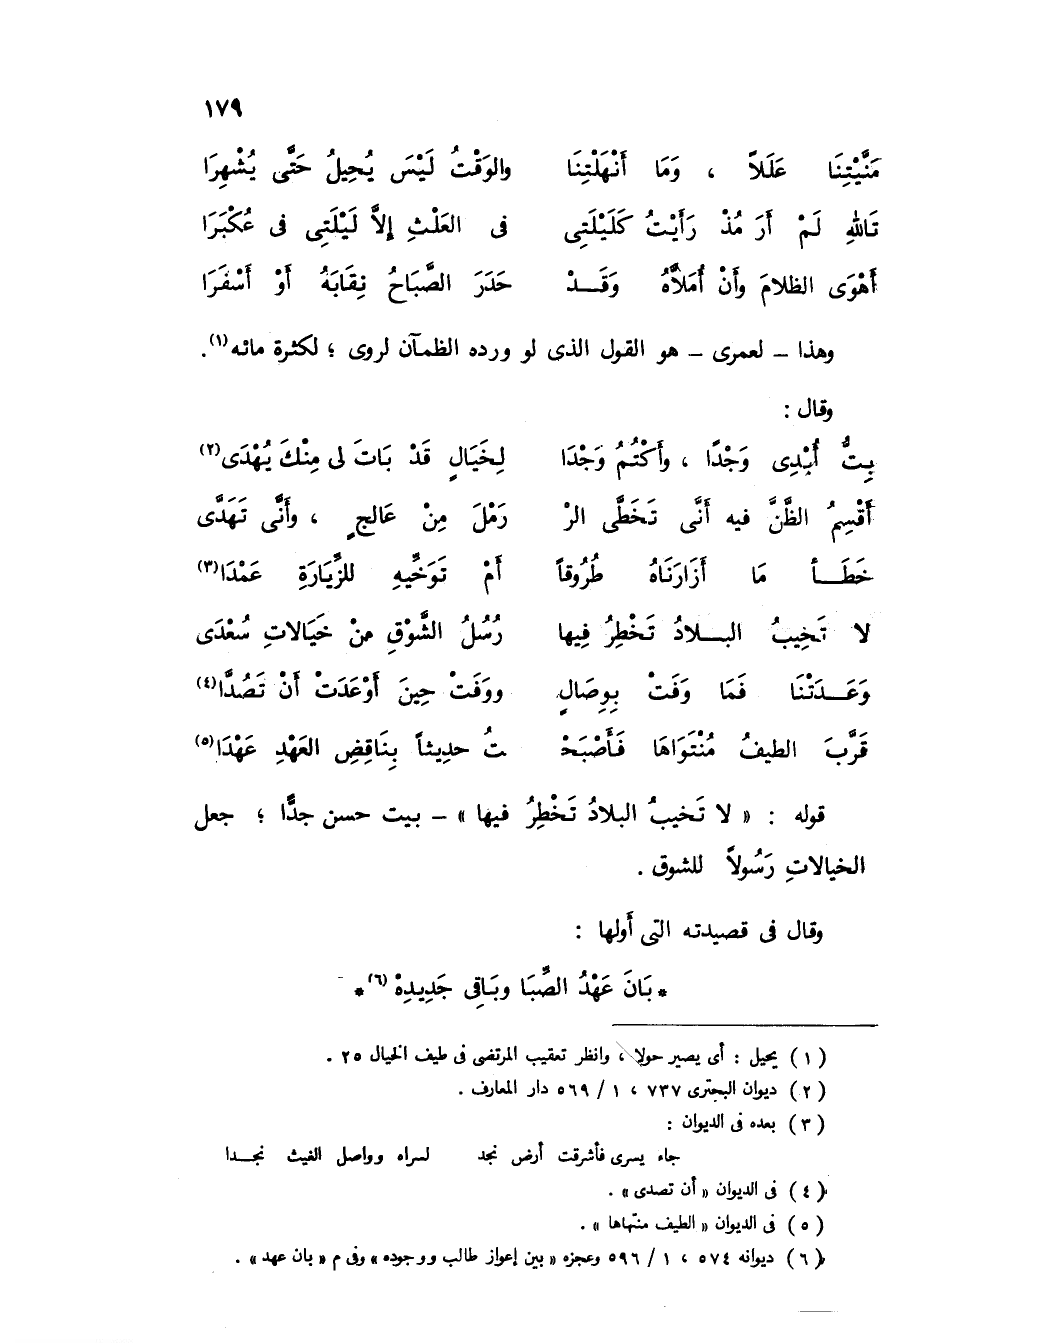 ١٧٩
مَنَّيْتِنَا عَلَلاً ، وَمَا أَنْهَلْتِنَا والوَقْتُ لَيْسَ يُحِيلُ حَتَّى يُشْهِرَا
تَاللهِ لَمْ أَرَ مُذْ رَأَيْتُ كَلَيْلَتِى فى العَلْثِ إلاَّ لَيْلَتِى فى عُكْبَرَا
أَهْوَى الظلامَ وأَنْ أُمَلاَّهُ وَقَــدْ حَدَرَ الصَّبَاحُ نِقَابَهُ أوْ أسْفَرَا
وهذا – لعمرى – هو القول الذى لو ورده الظمآن لروى ؛ لكثرة مائه(١).
وقال :
بِتُّ أُبْدِى وَجْدًا ، وأكْتُمُ وَجْدَا لِخَيَالٍ قَدْ بَاتَ لى مِنْكَ يُهْدَى(٢)
أقْسِمُ الظَّنَّ فيه أنَّى تَخَطَّى الرْ رَمْلَ مِنْ عَالجٍ ، وأَنَّى تَهَدَّى
خَطَــأ مَا أزَارَنَاهُ طُرُوقاً أمْ تَوَخِّيهِ للزِّيَارَةِ عَمْدَا(٣)
لا تَخِيبُ البــلادُ تَخْطِرُ فِيها رُسُلُ الشَّوْقِ مِنْ خَيَالاتِ سُعْدَى
وَعَــدَتْنَا فَمَا وَفَتْ بِوِصَالٍ ووَفَتْ حِينَ أوْعَدَتْ أنْ تَصُدَّا(٤)
قَرَّبَ الطيفُ مُنْتَوَاهَا فَأصْبَحْ تُ حديثاً بِنَاقِضِ العَهْدِ عَهْدَا(٥)
قوله : « لا تَخيبُ البلادُ تَخْطِرُ فيها » – بيت حسن جدًّا ؛ جعل
الخيالاتِ رَسُولاً للشوق .
وقال فى قصيدته التى أولها :
* بَانَ عَهْدُ الصِّبَا وبَاقِى جَدِيدِهْ (٦) *
( ١ ) يحيل : أى يصير حولا ، وانظر تعقيب المرتضى فى طيف الخيال ٢٥ .
( ٢ ) ديوان البحترى ٧٣٧ ، ١ / ٥٦٩ دار المعارف .
( ٣ ) بعده فى الديوان :
جاء يسرى فأشرقت أرض نجد لسراه وواصل الغيث نجــدا
( ٤ ) فى الديوان « أن تصدى » .
( ٥ ) فى الديوان « الطيف منتهاها » .
( ٦ ) ديوانه ٥٧٤ ، ١ / ٥٩٦ وعجزه « بين إعواز طالب ووجوده » وفى م « بان عهد » .